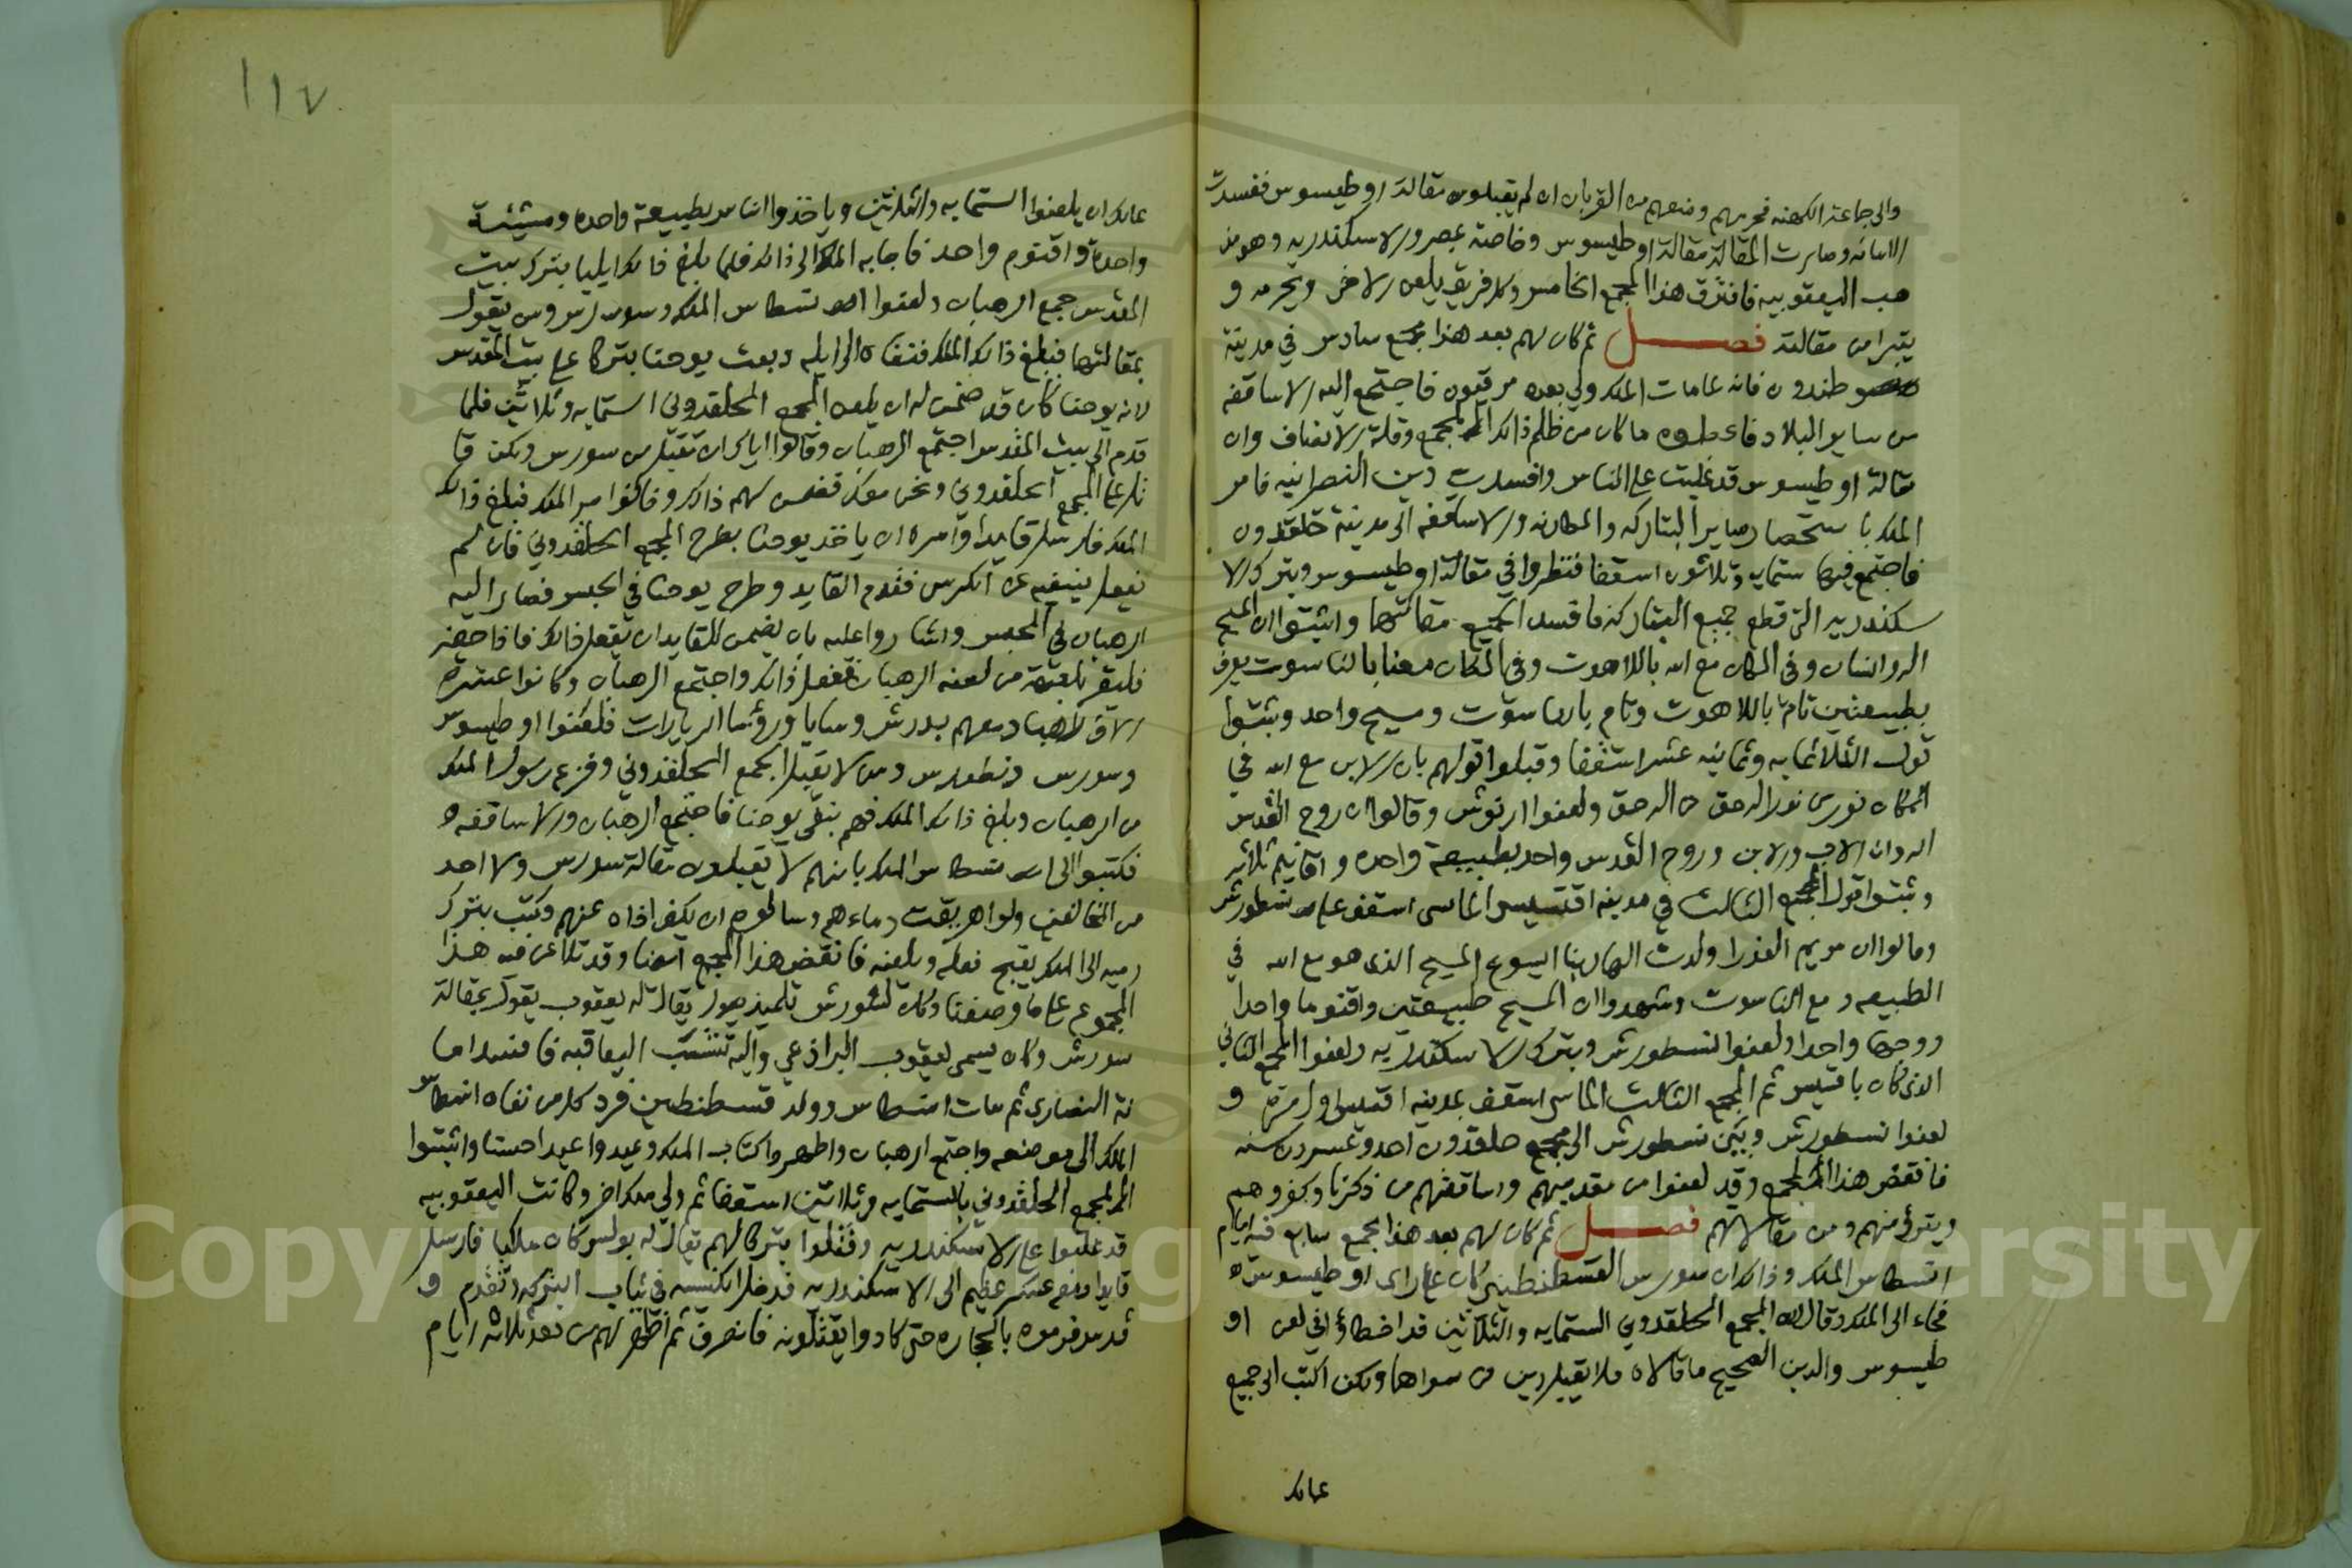 والى جماعة الكهنه فحرمهم ومنعهم من القربان ان لم يقبلوا مقالة اوطيسوس ففسدت
الامانه وصارت المقالة مقالة اوطيسوس وخاصة بمصر والاسكندريه وهو مذ
هب اليعقوبيه فافترق هذا المجمع الخامس وكل فريق يلعن الاخر ويحرمه و
يتبرا من مقالته فصل ثم كان لهم بعد هذا مجمع سادس في مدينة
طندون فانه لما مات الملك ولي بعده مرقيون فاجتمع اليه الاساقفه
من ساير البلاد فاعلموه ما كان من ظلم ذلك المجمع وقلة الانصاف وان
مقالة اوطيسوس قد غلبت على الناس وافسدت دين النصرانيه فامر
الملك باستحضار ساير البتاركه والمطارنه والاساقفه الى مدينة خلقدون
فاجتمع فيها ستمايه وثلاثون اسقفا فنظروا في مقالة اوطيسوس وبترك الا
سكندريه التي قطع جميع البتاركه فافسد الجميع مقالتهما واثبتوا ان المسيح
اله وانسان وفي المكان مع الله باللاهوت وفي المكان معنا بالناسوت يعرف
بطبيعتين تام باللاهوت وتام بالناسوت ومسيح واحد وثبتوا
قول الثلاثمايه وثمانيه عشر اسقفا وقبلوا قولهم بان الابن مع الله في
المكان نور من نور اله حق من اله حق ولعنوا اريوش وقالوا ان روح القدس
اله وان الاب والابن وروح القدس واحد بطبيعة واحده واقانيم ثلاثه
وثبتوا قول المجمع الثالث في مدينة افسيس المائتي اسقف على نسطورش
وقالوا ان مريم العذرا ولدت الها ربنا ايسوع المسيح الذي هو مع الله في
الطبيعه ومع الناسوت وشهدوا ان المسيح طبيعتين واقنوما واحدا
ووجها واحدا ولعنوا نسطورش وبترك الاسكندريه ولعنوا المجمع الثاني
الذي كان بافسيس ثم المجمع الثالث المائتي اسقف بمدينة افسيس اول مره و
لعنوا نسطورش وبين نسطورش الى مجمع خلقدون احد وعشرون سنه
فانقض هذا المجمع وقد لعنوا من مقدميهم واساقفتهم من ذكرنا وكفروهم
وتبرؤ منهم ومن مقالاتهم فصل ثم كان لهم بعد هذا مجمع سابع في ايام
انسطاس الملك وذلك ان سورس القسطنطيني كان على راى اوطيسوس
فجاء الى الملك وقال له المجمع الخلقدوني الستمايه والثلاثين قد اخطاؤا في لعن او
طيسوس والدين الصحيح ما قالاه فلا تقبل دين من سواهما ولكن اكتب الى جميع
عمالك
١١٧
عمالك ان يلعنوا الستمايه والثلاثين وياخذوا الناس بطبيعة واحده ومشيئة
واحدة واقنوم واحد فاجابه الملك الى ذلك فلما بلغ ذلك ايليا بترك بيت
المقدس جمع الرهبان ولعنوا انسطاس الملك وسورس ومن يقول
بمقالتهما فبلغ ذلك الملك فنفاه الى ايله وبعث يوحنا بتركا على بيت المقدس
لان يوحنا كان قد ضمن له ان يلعن المجمع الخلقدوني الستمايه وثلاثين فلما
قدم الى بيت المقدس اجتمع الرهبان وقالوا اياك ان تقبل من سورس ولكن قا
تل عن المجمع الخلقدوني ونحن معك فضمن لهم ذلك وخالفوا امر الملك فبلغ ذلك
الملك فارسل قايدا وامره ان ياخذ يوحنا بطرح المجمع الخلقدوني فان لم
يفعل ينفيه عن الكرسي فقدم القايد وطرح يوحنا في الحبس فصار اليه
الرهبان في الحبس واشاروا عليه بان يضمن للقايد ان يفعل ذلك فاذا حضر
فليقر بلعنة من لعنه الرهبان ففعل ذلك واجتمع الرهبان وكانوا عشرة
الاف راهب ومعهم بدرس وسابا ورؤسا الديارات فلعنوا اوطيسوس
وسورس ونسطورس ومن لا يقبل المجمع الخلقدوني وفزع رسول الملك
من الرهبان وبلغ ذلك الملك فهم بنفي يوحنا فاجتمع الرهبان والاساقفه
فكتبوا الى انسطاس الملك بانهم لا يقبلون مقالة سورس ولا احد
من المخالفين ولو اهريقت دماءهم وسالوه ان يكف اذاه عنهم وكتب بترك
روميه الى الملك بقبح فعله وبلعنه فانقض هذا المجمع ايضا وقد تلاعن فيه هذا
المجموع على ما وصفنا وكان لسورش تلميذ يقال له يعقوب يقول بمقالة
سورش وكان يسمى يعقوب البراذعي واليه تنسب اليعاقبه فافسد اما
نة النصارى ثم مات انسطاس وولد قسطنطين فرد كل من نفاه انسطاس
الملك الى موضعه واجتمع الرهبان واظهروا كتاب الملك وعيدوا عيدا حسنا واثبتوا
المجمع الخلقدوني بالستمايه وثلاثين اسقفا ثم ولي ملك اخر وكانت اليعقوبيه
قد غلبوا على الاسكندريه وقتلوا بتركا لهم يقال له بولس كان ملكيا فارسل
قايدا ومعه عسكر عظيم الى الاسكندريه فدخل الكنيسه في ثياب البتركه وتقدم و
قدس فرموه بالحجاره حتى كادوا يقتلونه فانصرف ثم اظهر لهم من بعد ثلاثه ايام
Copyright © King Saud University